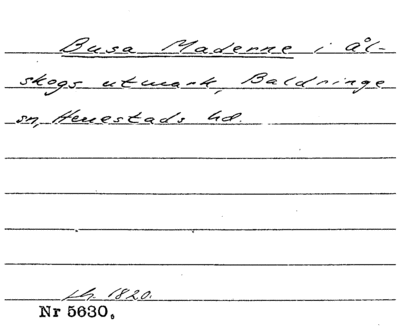 Busa Maderne i ål-
skogs utmark, Baldringe
sn, Herrestads hd.
1820.
Nr 5630.